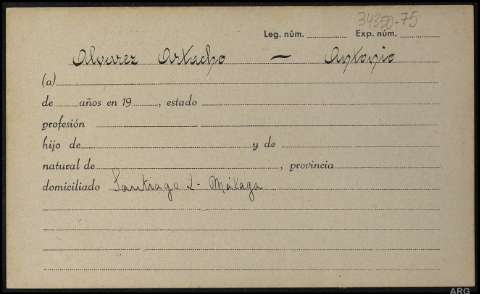 34350-75
Leg. núm. Exp. núm.
Alvarez Artacho — Antonio
(a)
de años en 19 , estado
profesión
hijo de y de
natural de , provincia
domiciliado Santiago 2 - Málaga
ARG